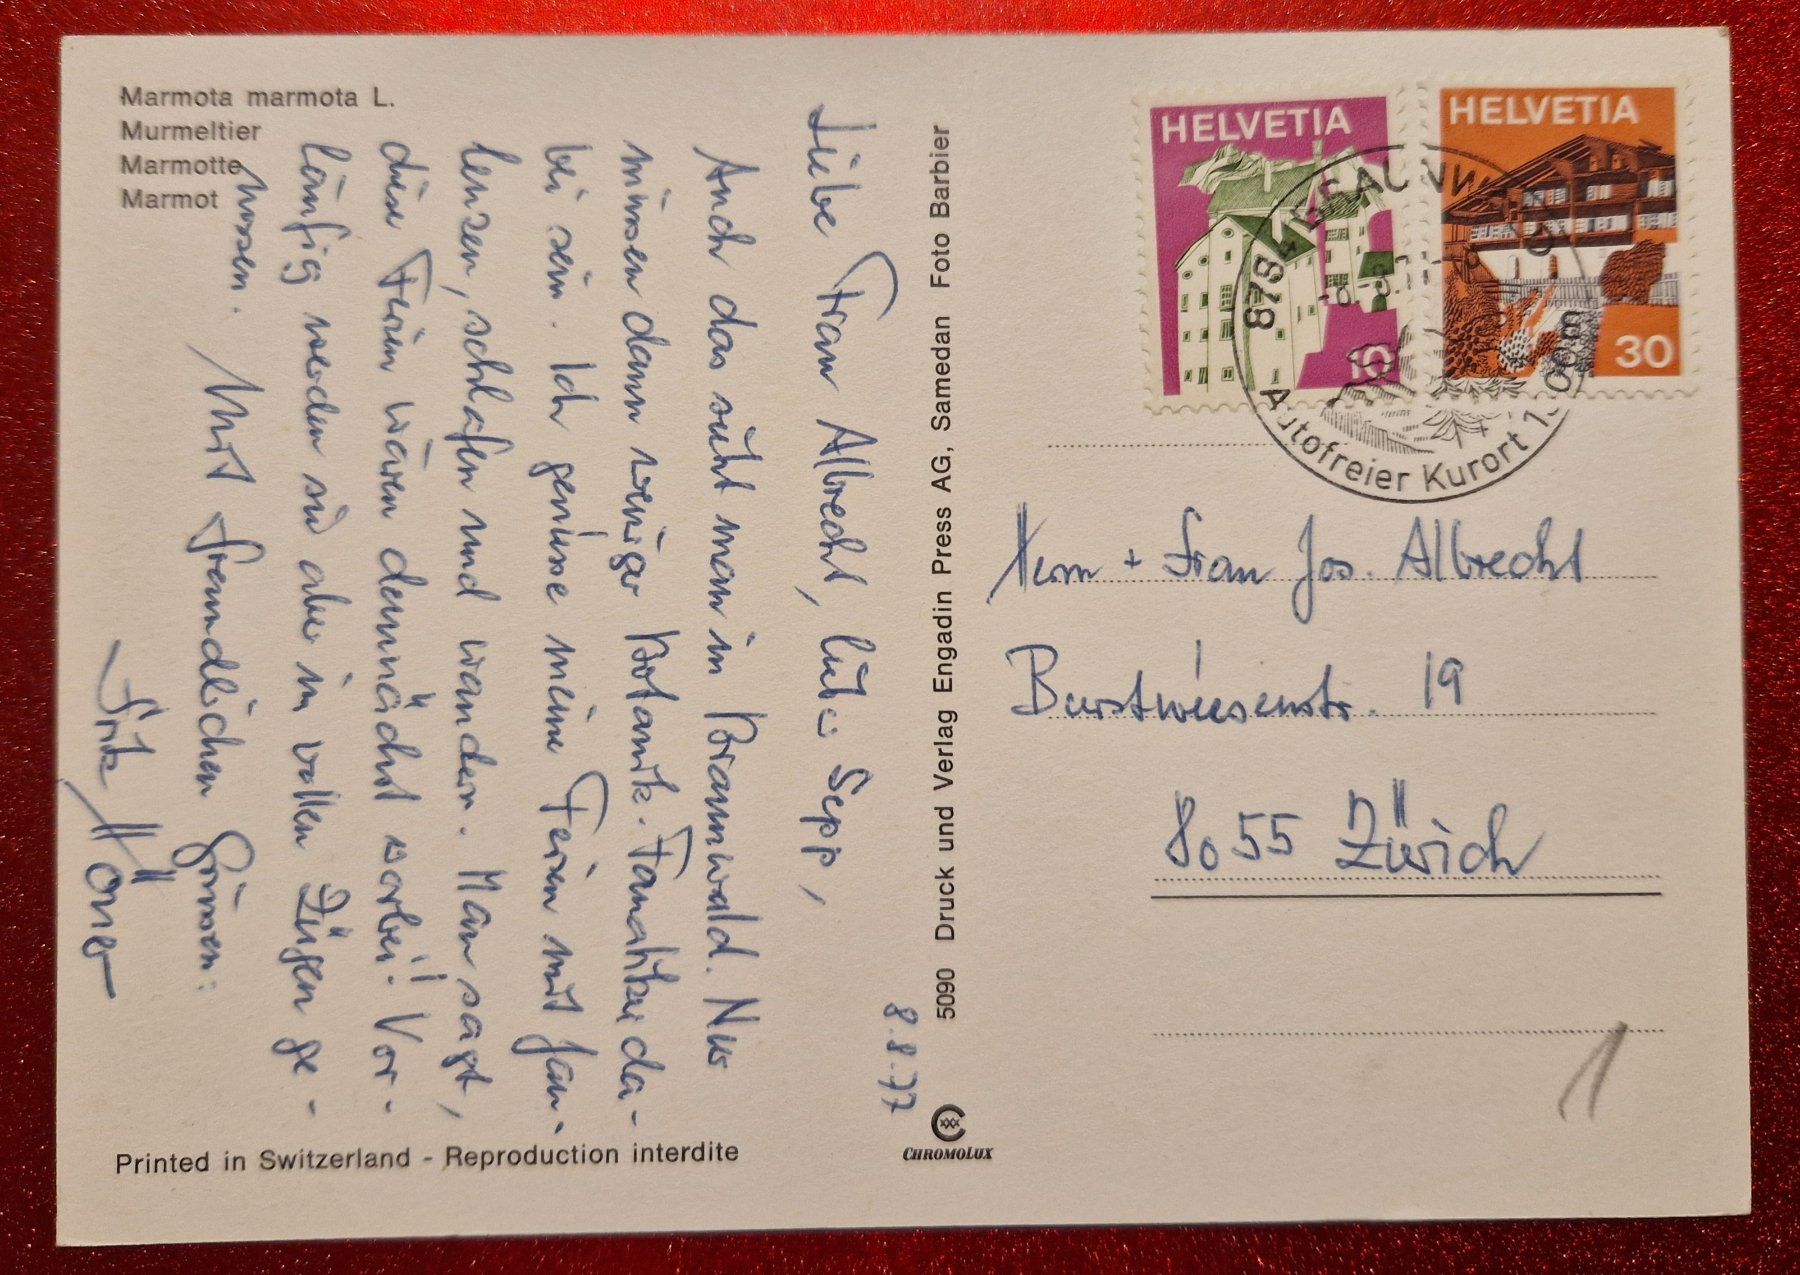 Marmota marmota L.
Murmeltier
Marmotte
Marmot
8.8.77
Liebe Frau Albrecht, lieber Sepp,
Auch das sieht man in Braunwald. Nur
müssen dann weniger Botanik-Fanatiker da-
bei sein. Ich geniesse meine Ferien mit fau-
lenzen, schlafen und wandern. Man sagt,
diese Ferien wären demnächst vorbei! Vor-
läufig werden sie aber in vollen Zügen ge-
nossen.
Mit freundlichen Grüssen:
Fritz
Printed in Switzerland - Reproduction interdite
5090 Druck und Verlag Engadin Press AG, Samedan Foto Barbier
CHROMOLUX
HELVETIA
10
HELVETIA
30
8784 BRAUNWALD
Autofreier Kurort
Herrn + Frau Jos. Albrecht
Burstwiesenstr. 19
8055 Zürich
1